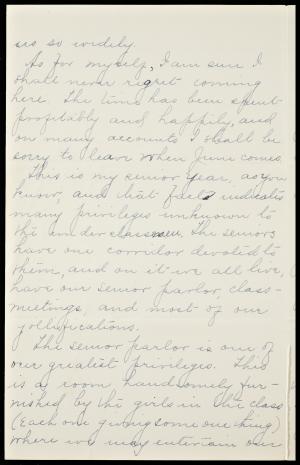 us so cordily.
As for myself, I am sure I
shall never regret coming
here. The time has been spent
profitably and happily, and
on many accounts I shall be
sorry to leave when June comes.
This is my senior year, as you
know, and that fact indicates
many privileges unknown to
the underclassmen. The seniors
have one corridor devoted to
them, and on it we all live,
have our senior parlor, class-
meetings, and most of our
jollifications.
The senior parlor is one of
our greatest privileges. This
is a room handsomely fur-
nished by the girls in the class
(Each one giving some one thing)
where we may entertain our